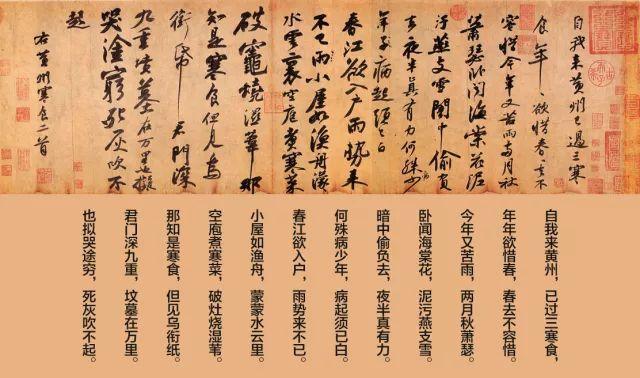 自我來黃州已過三寒
食年〻欲惜春〻去不
容惜今年又苦雨兩月秋
蕭瑟臥聞海棠花泥
汙燕支雪闇中偷負
去夜半真有力何殊少
年子病起頭已白
春江欲入戶雨勢來
不已雨小屋如漁舟濛〻
水雲裏空庖煮寒菜
破竈燒濕葦那
知是寒食但見烏
銜帋君門深
九重墳墓在万里也擬
哭塗窮死灰吹不
起
右黃州寒食二首
自我来黄州，已过三寒食，
年年欲惜春，春去不容惜。
今年又苦雨，两月秋萧瑟。
卧闻海棠花，泥污燕支雪。
暗中偷负去，夜半真有力。
何殊病少年，病起须已白。
春江欲入户，雨势来不已。
小屋如渔舟，蒙蒙水云里。
空庖煮寒菜，破灶烧湿苇。
那知是寒食，但见乌衔纸。
君门深九重，坟墓在万里。
也拟哭途穷，死灰吹不起。